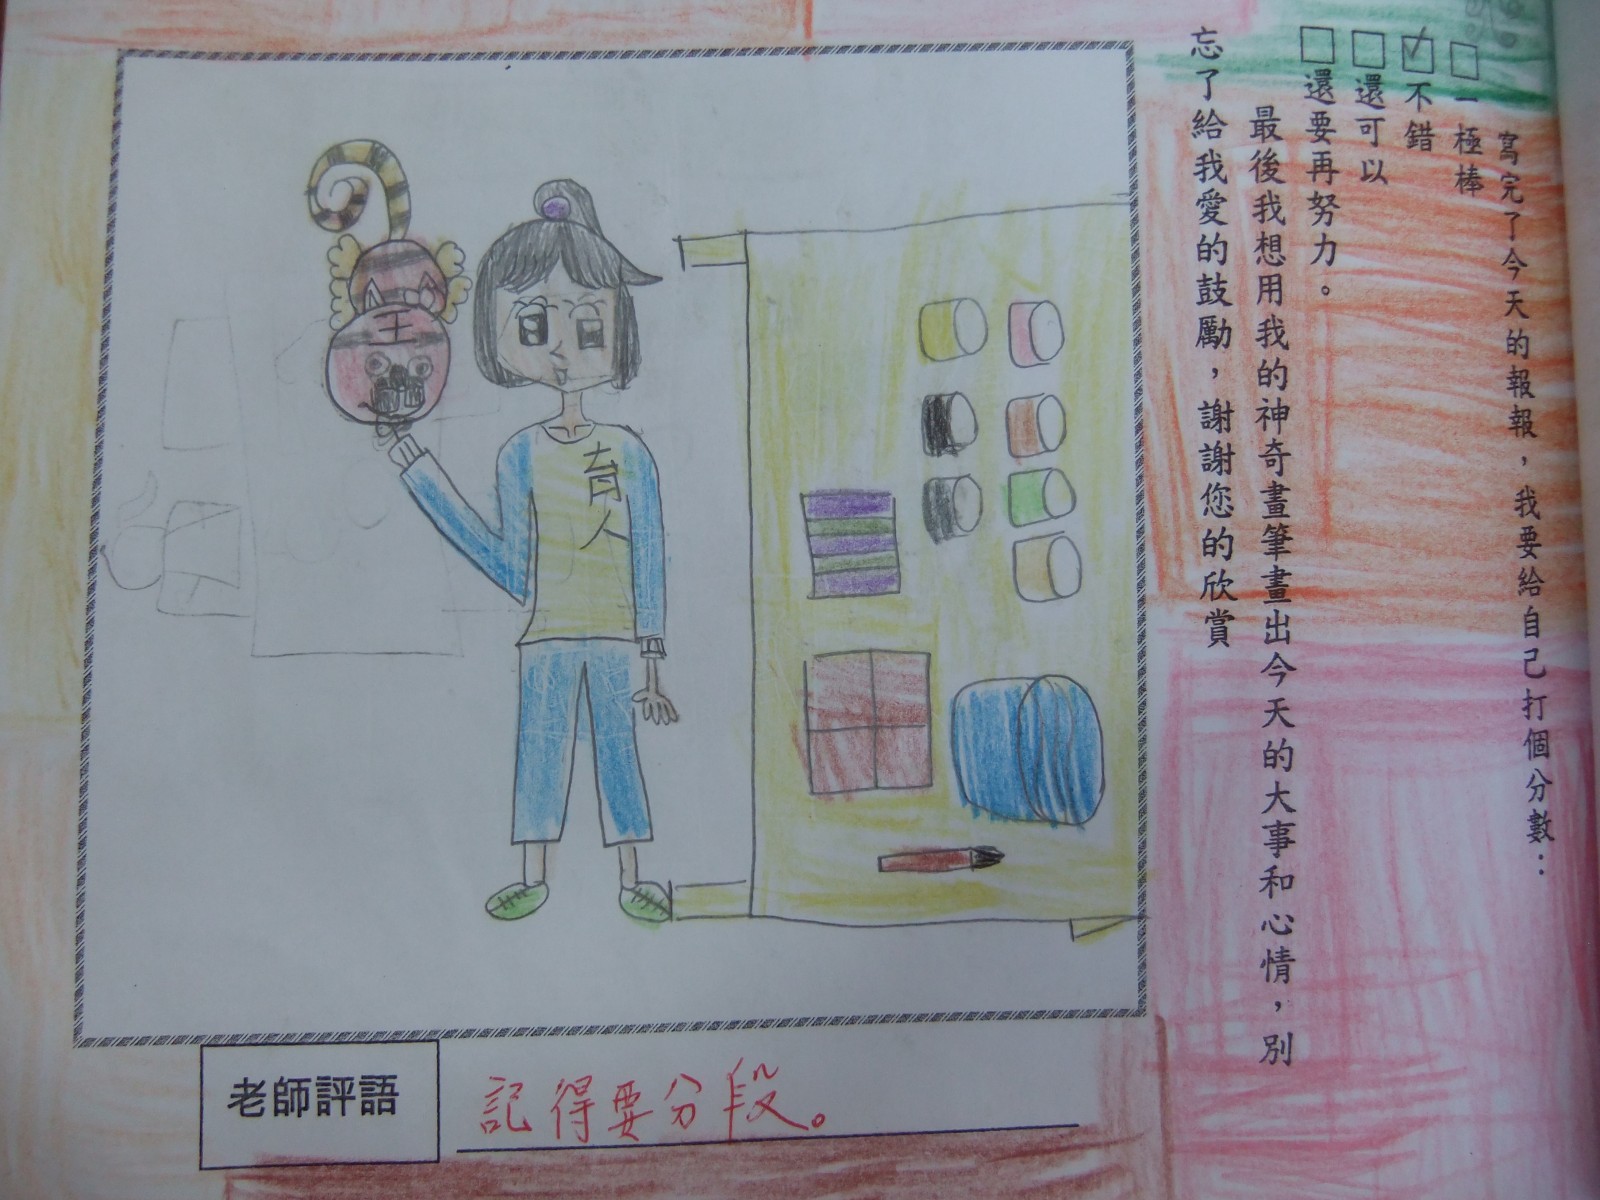 寫完了今天的報報，我要給自己打個分數：
一極棒
不錯
還可以
還要再努力。
最後我想用我的神奇畫筆畫出今天的大事和心情，別
忘了給我愛的鼓勵，謝謝您的欣賞
王
育人
老師評語
記得要分段。